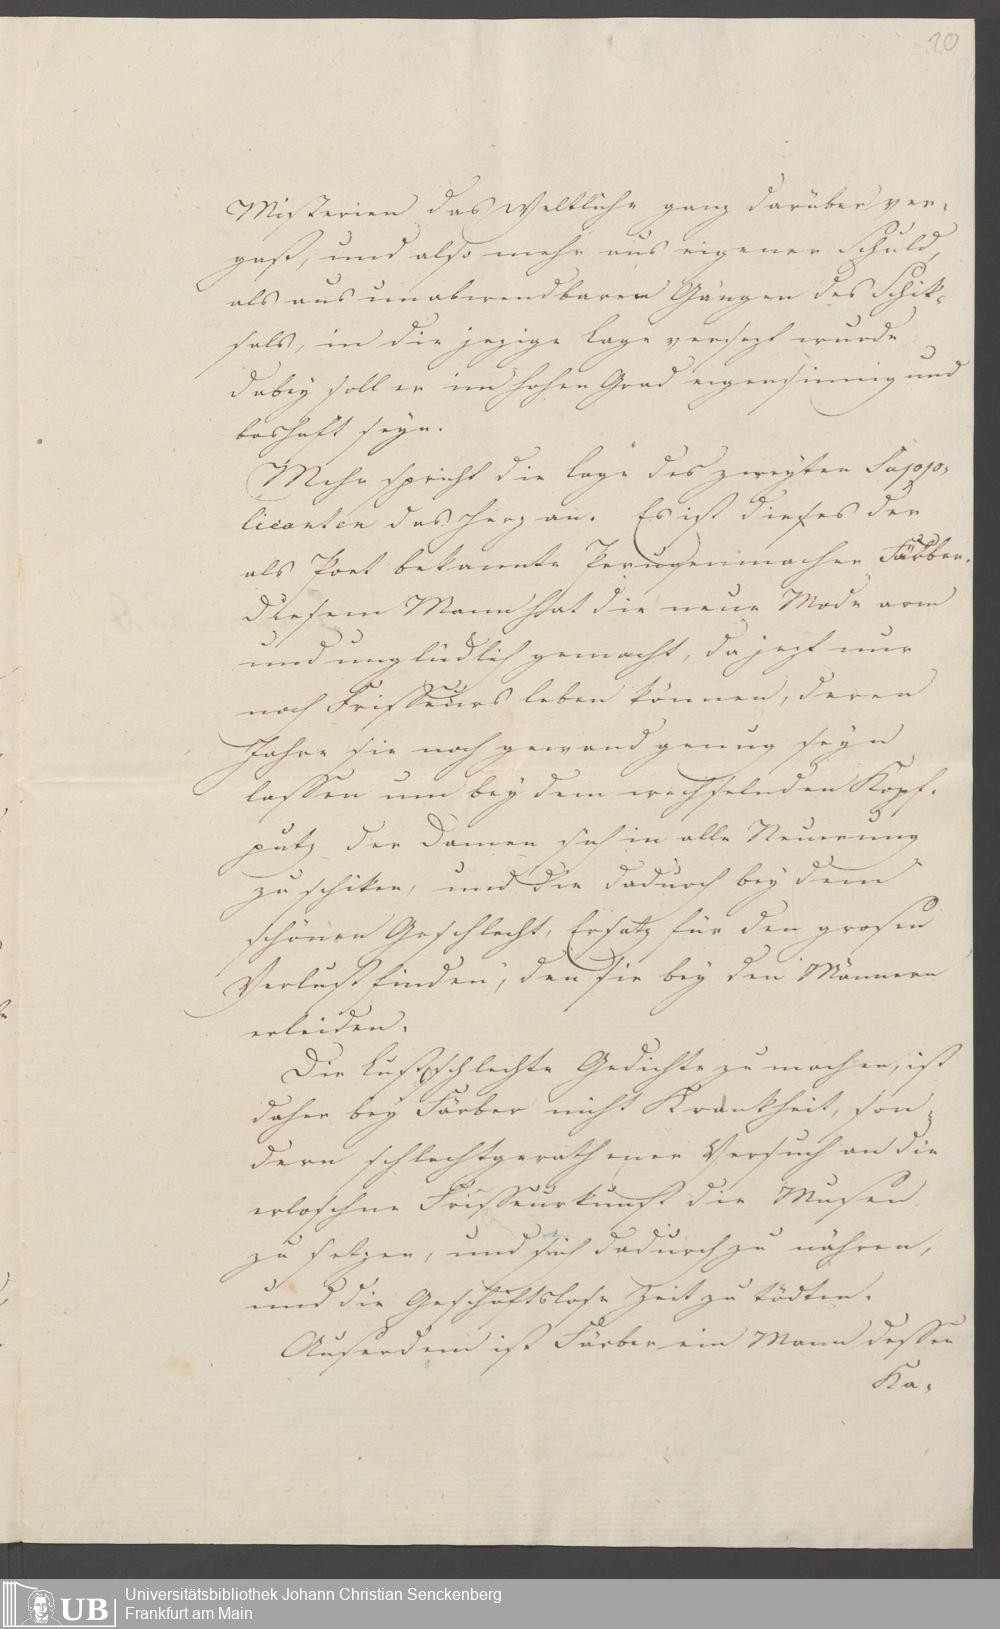 20
Misterien das Weltliche ganz darüber ver-
gaß, und also mehr aus eigener Schuld,
als aus unabwendbaren Gängen des Schik-
sals, in die jezige Lage versezt wurde
dabey soll er im hohen Grad eigensinnig und
boshaft seyn.
Mehr spricht die Lage des zweyten Supp-
licanten das Herz an. Es ist dieses der
als Poet bekannte Peruqenmacher Färber.
Diesem Mann hat die neue Mode arm
und unglüklich gemacht, da jezt nur
noch Frisseurs leben können, deren
Jahre sie noch gewand genug seyn
lassen um bey dem wechselnden Kopf-
putz der Damen sich in alle Neuerung
zu schiken, und die dadurch bey dem
schönen Geschlecht, Ersatz für den grosen
Verlust finden, den sie bey den Männern
erleiden.
Die Lust schlechte Gedichte zu machen, ist
daher bey Färber nicht Krankheit, son-
dern schlechtgerathener Versuch an die
erloschne Frisseurkunst die Musen
zu setzen, und sich dadurch zu nähren,
und die Geschäftslose Zeit zu tödten.
Auserdem ist Färber ein Mann dessen
Ka-
UB
Universitätsbibliothek Johann Christian Senckenberg
Frankfurt am Main